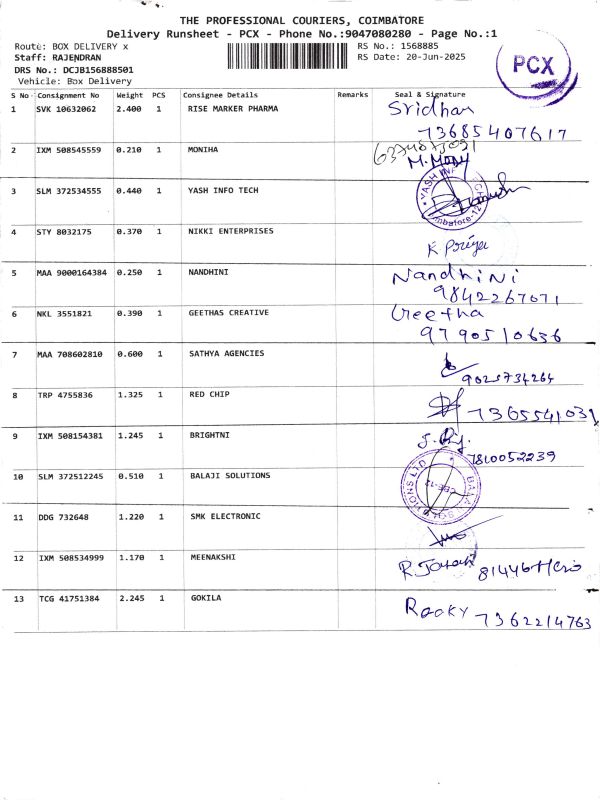 THE PROFESSIONAL COURIERS, COIMBATORE
Delivery Runsheet - PCX - Phone No.:9047080280 - Page No.:1
Route: BOX DELIVERY x RS No.: 1568885
Staff: RAJENDRAN RS Date: 20-Jun-2025
DRS No.: DCJB156888501
Vehicle: Box Delivery
PCX
S No Consignment No Weight PCS Consignee Details Remarks Seal & Signature
1 SVK 10632062 2.400 1 RISE MARKER PHARMA Sridhar
73685407617
2 IXM 508545559 0.210 1 MONIHA
3 SLM 372534555 0.440 1 YASH INFO TECH
4 STY 8032175 0.370 1 NIKKI ENTERPRISES K Priya
5 MAA 9000164384 0.250 1 NANDHINI Nandhini
9842267071
6 NKL 3551821 0.390 1 GEETHAS CREATIVE Geetha
9790510636
7 MAA 708602810 0.600 1 SATHYA AGENCIES
9025734264
8 TRP 4755836 1.325 1 RED CHIP
9 IXM 508154381 1.245 1 BRIGHTNI
7810052239
10 SLM 372512245 0.510 1 BALAJI SOLUTIONS
11 DDG 732648 1.220 1 SMK ELECTRONIC
12 IXM 508534999 1.170 1 MEENAKSHI
13 TCG 41751384 2.245 1 GOKILA Rocky 7362214763